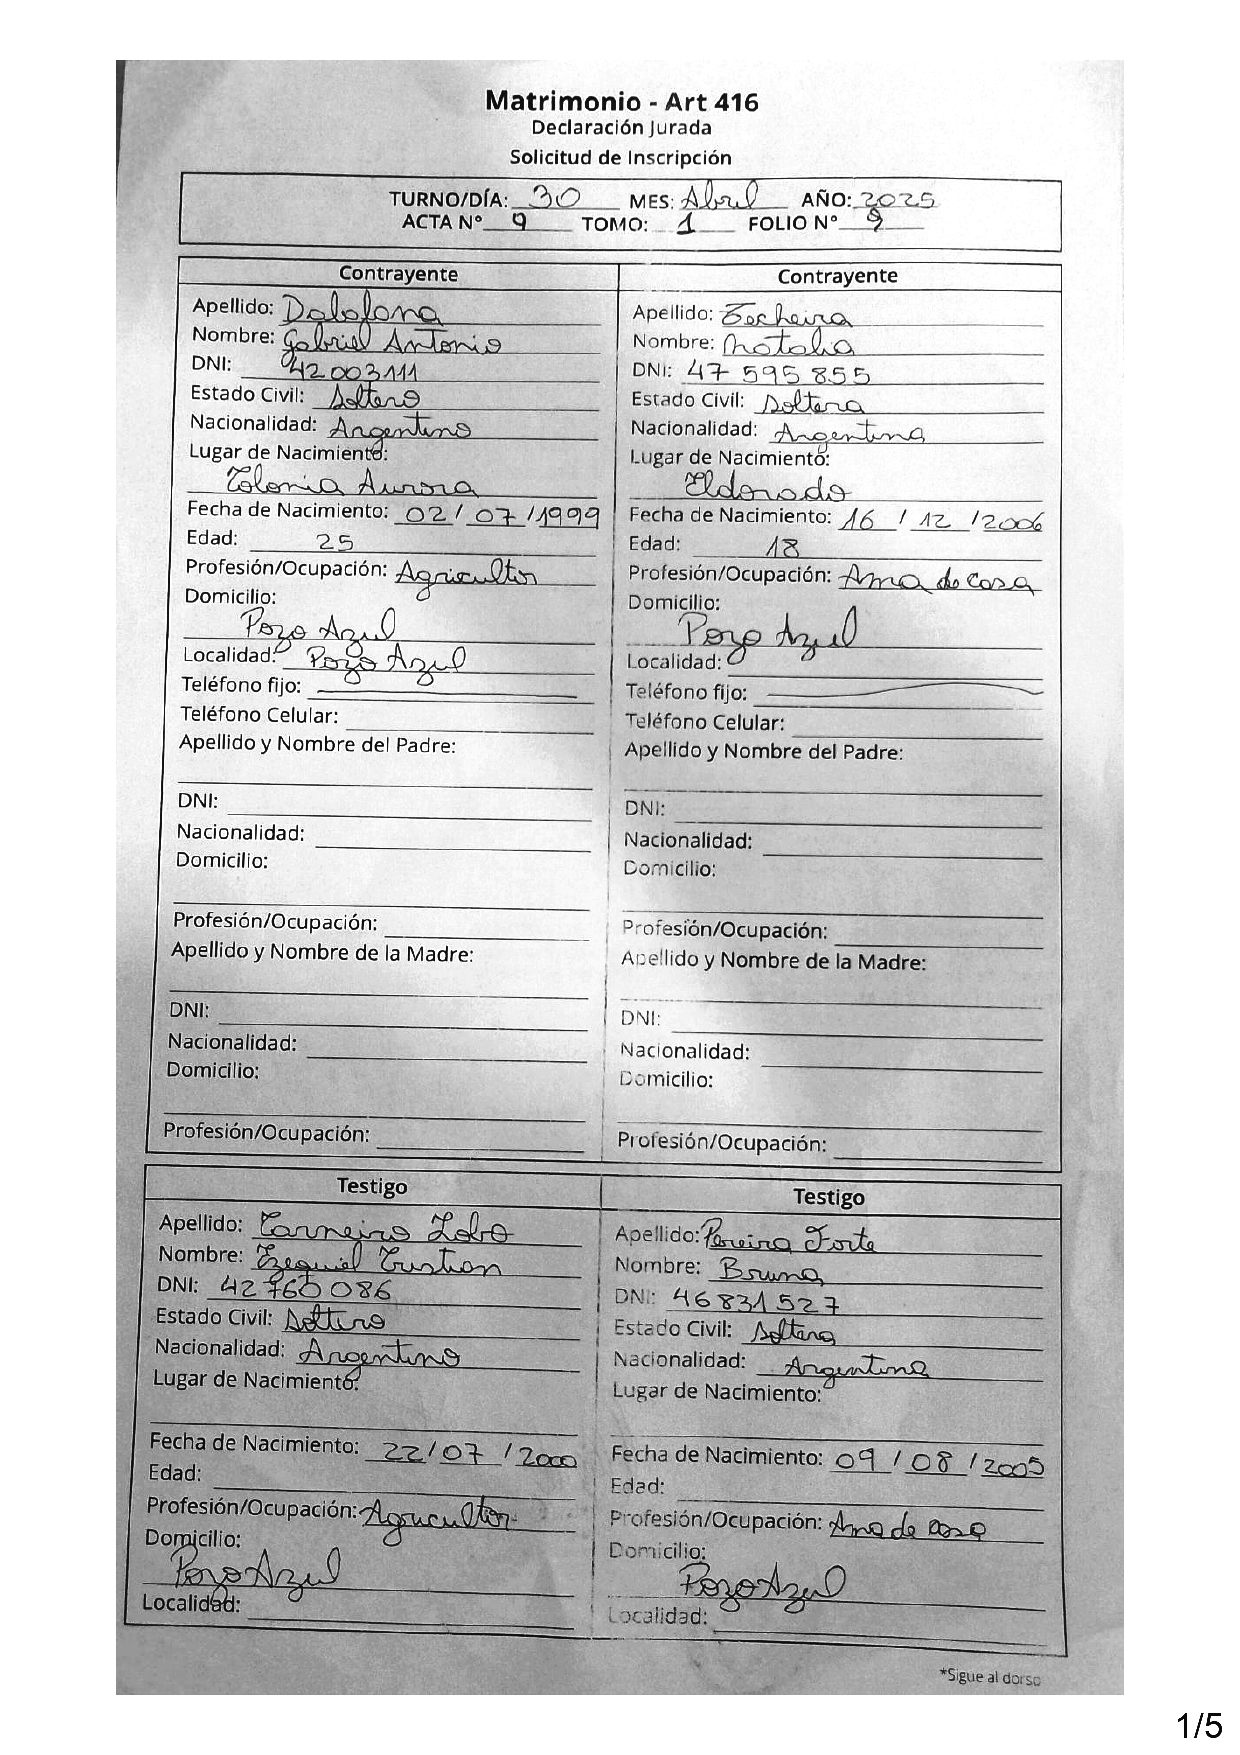 Matrimonio - Art 416
Declaración Jurada
Solicitud de Inscripción
TURNO/DÍA: 30 MES: Abril AÑO: 2025
ACTA N° 9 TOMO: 1 FOLIO N° 9
Contrayente
Apellido:
Nombre: Gabriel Antonio
DNI: 42003111
Estado Civil: Soltero
Nacionalidad: Argentino
Lugar de Nacimiento:
Colonia Aurora
Fecha de Nacimiento: 02/07/1999
Edad: 25
Profesión/Ocupación: Agricultor
Domicilio:
Pozo Azul
Localidad: Pozo Azul
Teléfono fijo:
Teléfono Celular:
Apellido y Nombre del Padre:
DNI:
Nacionalidad:
Domicilio:
Profesión/Ocupación:
Apellido y Nombre de la Madre:
DNI:
Nacionalidad:
Domicilio:
Profesión/Ocupación:
Contrayente
Apellido:
Nombre: Natalia
DNI: 47 595 855
Estado Civil: Soltera
Nacionalidad: Argentina
Lugar de Nacimiento:
Eldorado
Fecha de Nacimiento: 16/12/2006
Edad: 18
Profesión/Ocupación: Ama de casa
Domicilio:
Pozo Azul
Localidad:
Teléfono fijo:
Teléfono Celular:
Apellido y Nombre del Padre:
DNI:
Nacionalidad:
Domicilio:
Profesión/Ocupación:
Apellido y Nombre de la Madre:
DNI:
Nacionalidad:
Domicilio:
Profesión/Ocupación:
Testigo
Apellido: Carneiro Lobo
Nombre: Ezequiel Cristian
DNI: 42760086
Estado Civil: Soltero
Nacionalidad: Argentino
Lugar de Nacimiento:
Fecha de Nacimiento: 22/07/2000
Edad:
Profesión/Ocupación: Agricultor
Domicilio:
Pozo Azul
Localidad:
Testigo
Apellido: Pereira Forte
Nombre: Bruna
DNI: 46831527
Estado Civil: Soltera
Nacionalidad: Argentina
Lugar de Nacimiento:
Fecha de Nacimiento: 09/08/2005
Edad:
Profesión/Ocupación: Ama de casa
Domicilio:
Pozo Azul
Localidad:
*Sigue al dorso
1/5